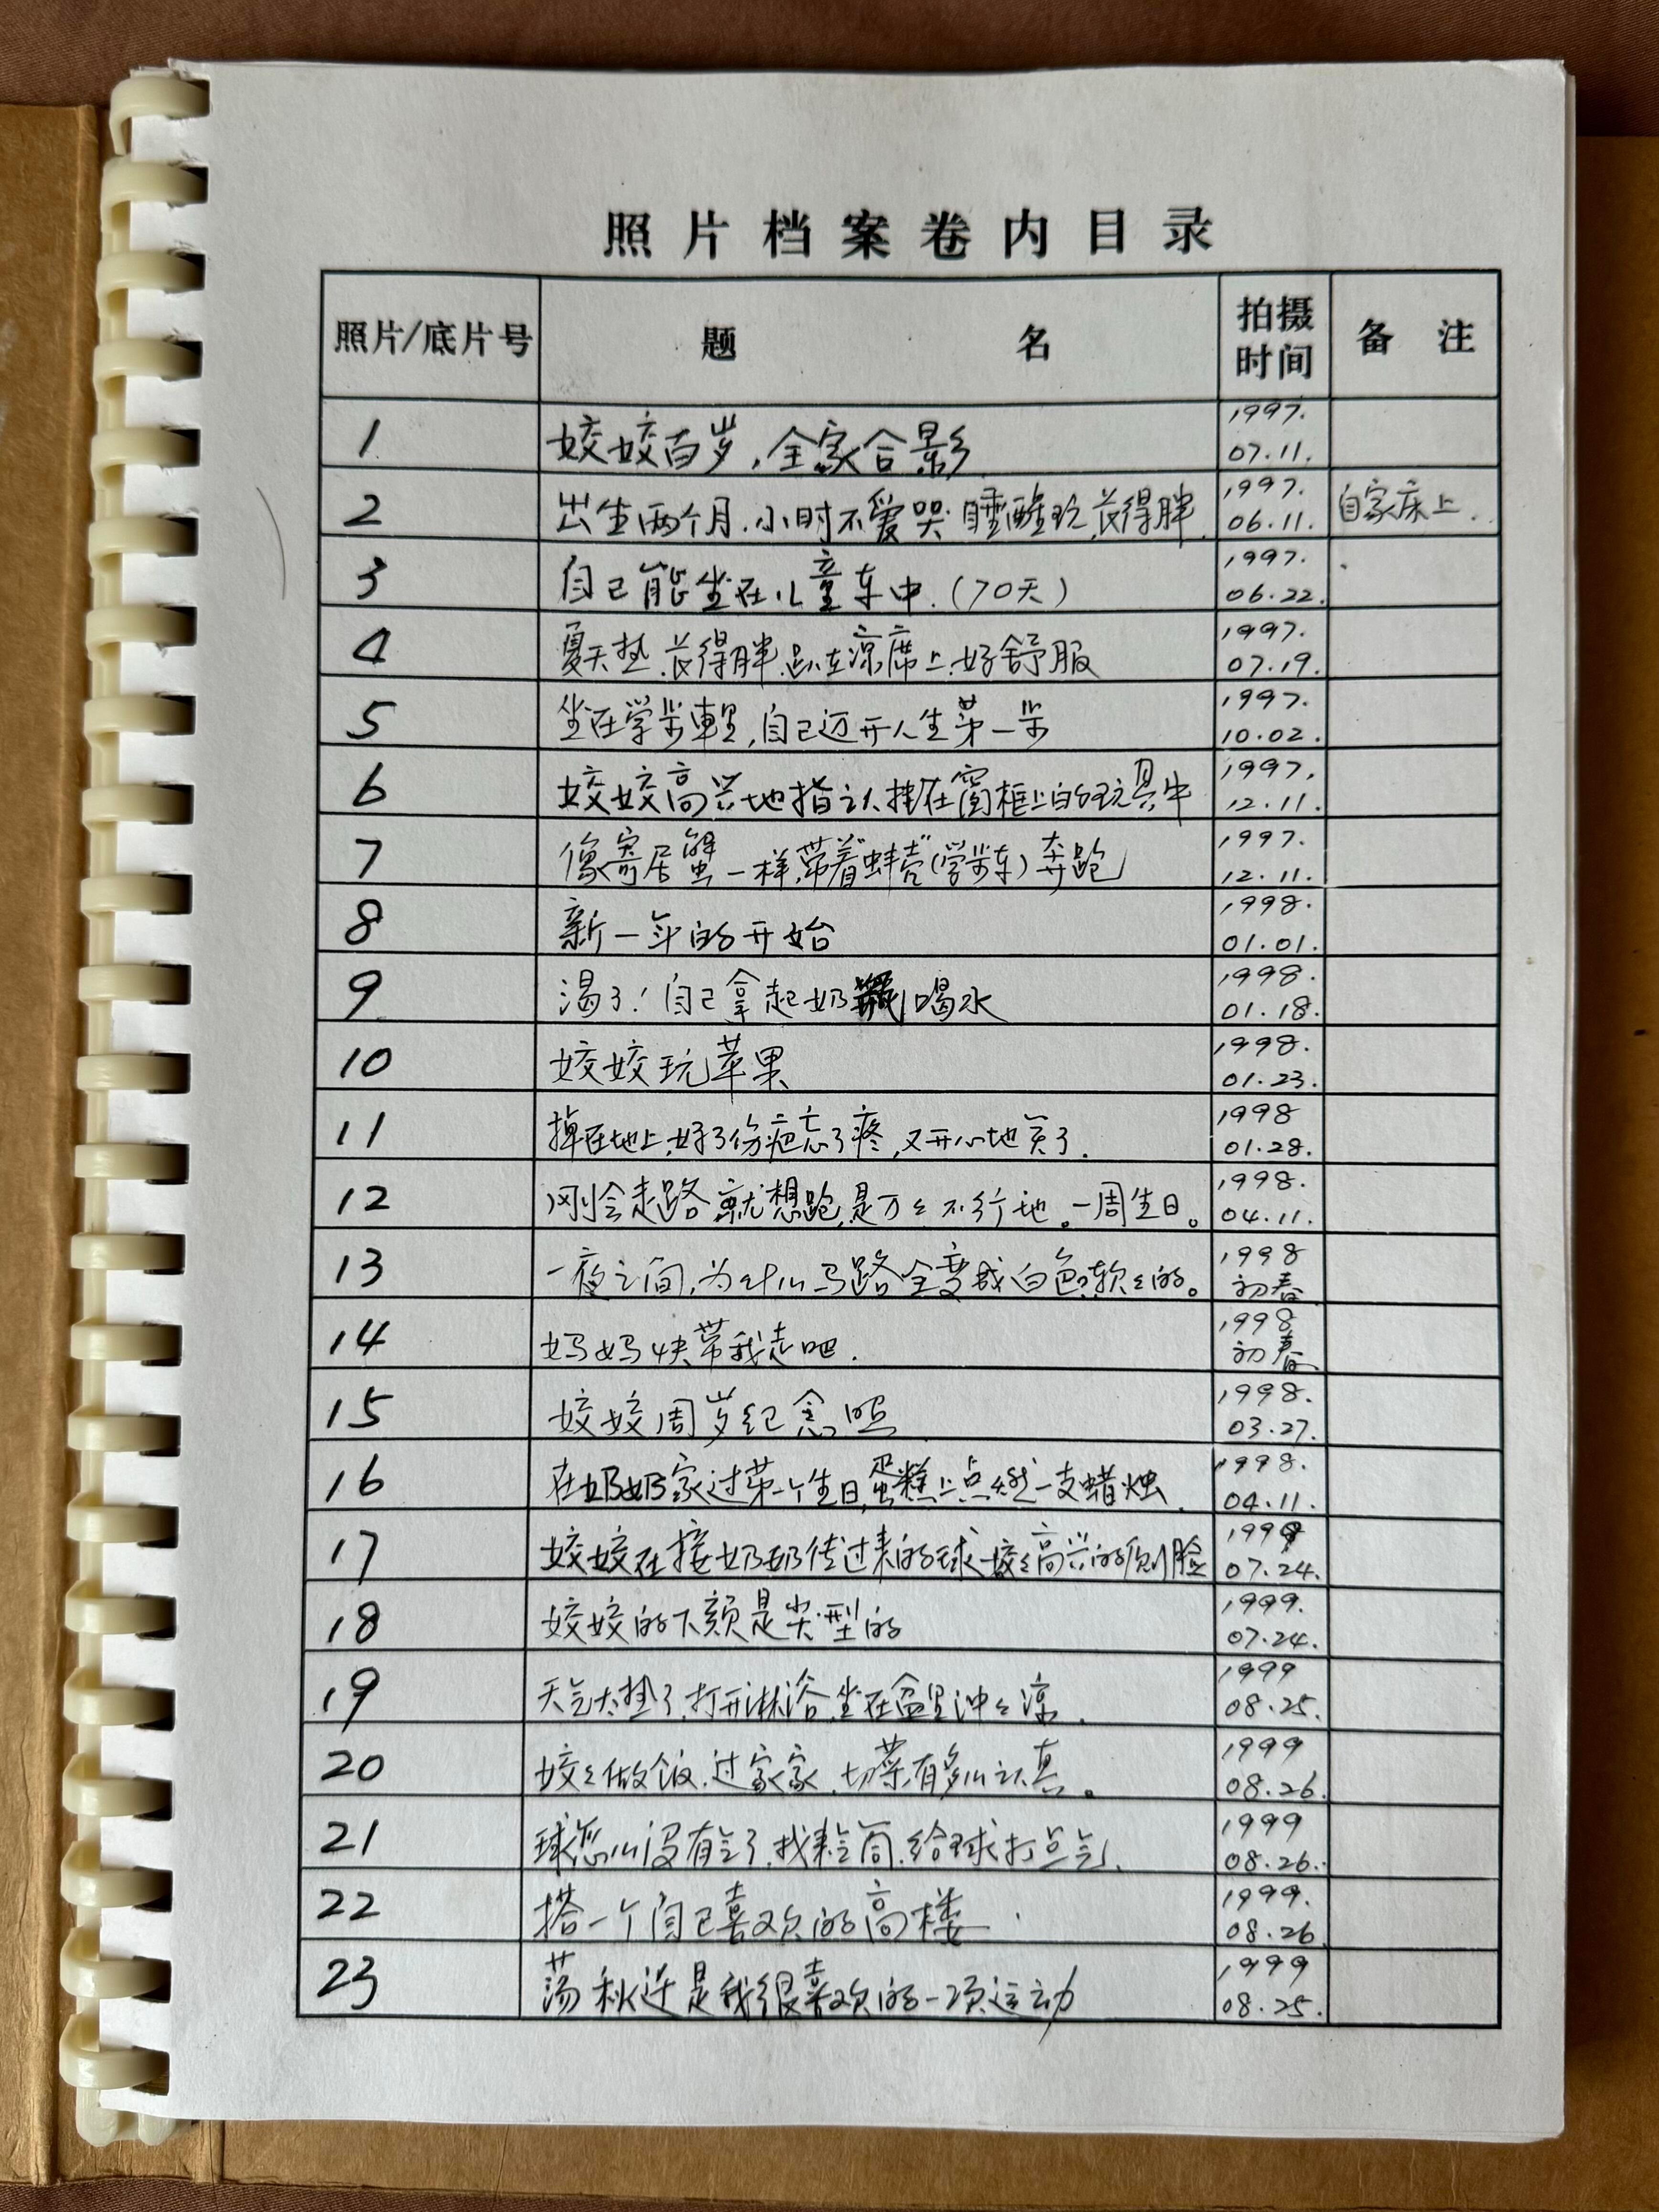 照片档案卷内目录
照片/底片号 题名 拍摄时间 备注
1 姣姣百岁,全家合影 1997.07.11.
2 出生两个月.小时不爱哭.睡醒玩,长得胖. 1997.06.11. 自家床上.
3 自己能坐在儿童车中.(70天) 1997.06.22.
4 夏天热.长得胖.趴在凉席上.好舒服 1997.07.19.
5 坐在学步車里,自己迈开人生第一步 1997.10.02.
6 姣姣高兴地指认挂在窗框上的玩具牛 1997.12.11.
7 像寄居蟹一样,带着"蚌壳"(学步车)奔跑 1997.12.11.
8 新一年的开始 1998.01.01.
9 渴了!自己拿起奶瓶喝水 1998.01.18.
10 姣姣玩苹果 1998.01.23.
11 掉在地上,好了伤疤忘了疼,又开心地笑了. 1998 01.28.
12 刚会走路就想跑,是万々不行地。一周生日。 1998.04.11.
13 一夜之间,为什么马路全变成白色?软々的。 1998 初春
14 妈妈快带我走吧. 1998 初春
15 姣姣周岁纪念照 1998.03.27.
16 在奶奶家过第一个生日,蛋糕上点燃一支蜡烛. 1998.04.11.
17 姣姣在接奶奶传过来的球.姣々高兴的侧脸 1999 07.24.
18 姣姣的下颏是尖型的 1999.07.24.
19 天气太热了,打开淋浴,坐在盆里冲々凉. 1999 08.25.
20 姣々做饭.过家家.切菜有多么认真。 1999 08.26.
21 球怎么没有气了.找来气筒.给球打点气. 1999 08.26.
22 搭一个自己喜欢的高楼 1999.08.26
23 荡秋迁是我很喜欢的一项运动 1999 08.25.